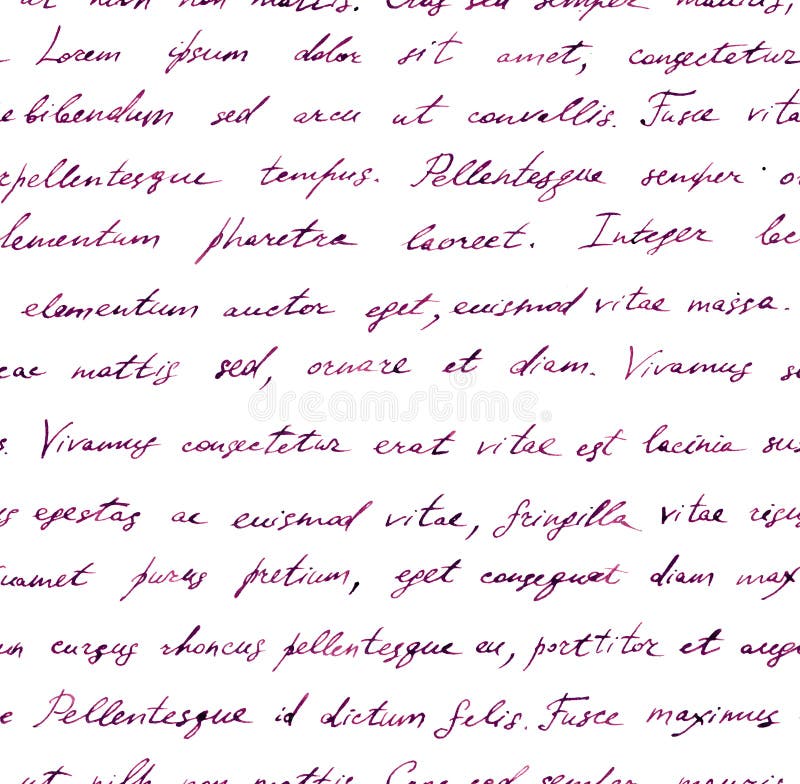 ut nibh non mattis. Cras sed semper mauris,
Lorem ipsum dolor sit amet, consectetur
e bibendum sed arcu ut convallis. Fusce vita
rpellentesque tempus. Pellentesque semper or
lementum pharetra laoreet. Integer lac
elementum auctor eget, euismod vitae massa.
cac mattis sed, ornare et diam. Vivamus s
s. Vivamus consectetur erat vitae est lacinia sus
us egestas ac euismod vitae, fringilla vitae risus
uamet purus pretium, eget consequat diam max
un cursus rhoncus pellentesque eu, porttitor et augu
e Pellentesque id dictum felis. Fusce maximus
ut nibh non mattis. Cras sed semper mauris
dreamstime